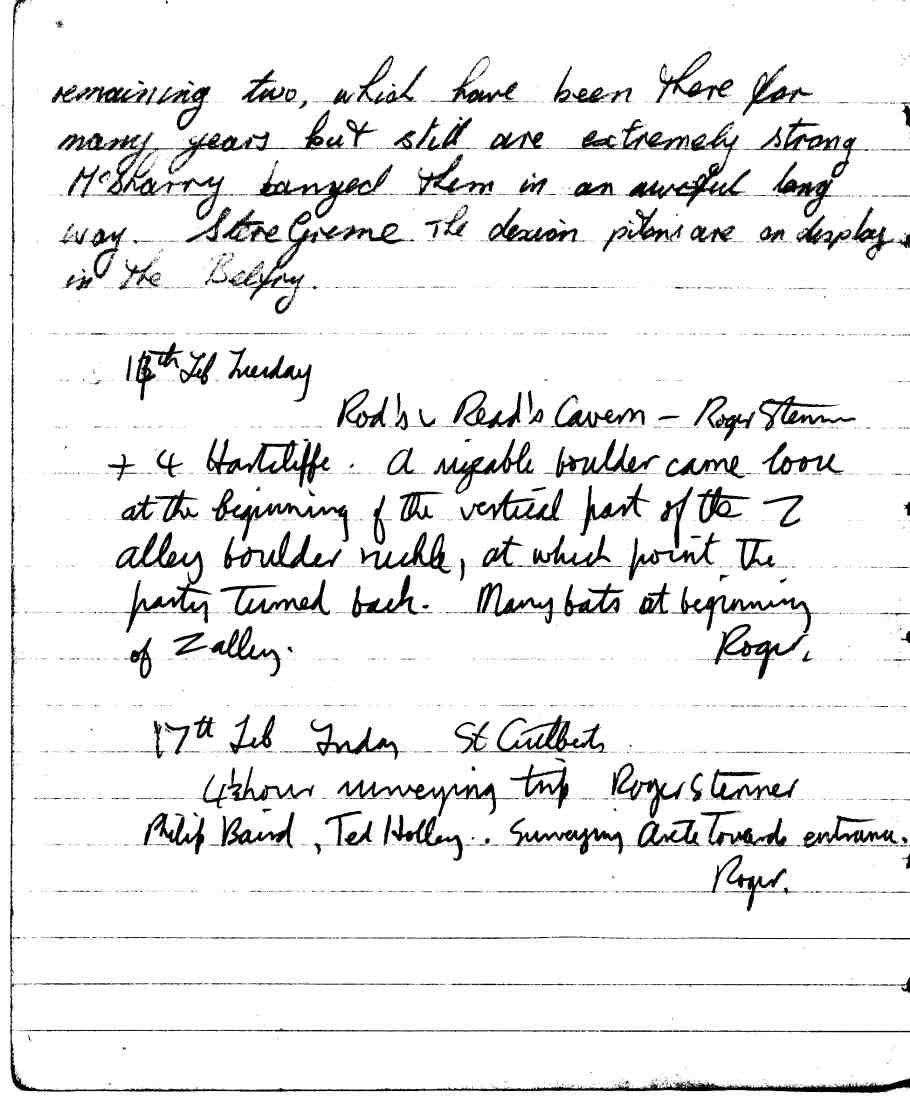 remaining two, which have been there for
many years but still are extremely strong
McSharry banged them in an awful long
way. Steve Greme The dexion pitons are on display
in the Belfry.
Feb Tuesday
Rod's & Read's Cavern - Roger Stenner
+ 4 Hartcliffe. A sizable boulder came loose
at the beginning of the vertical part of the Z
alley boulder ruckle, at which point the
party turned back. Many bats at beginning
of Z alley. Roger.
17th Feb Friday St Cuthberts
4½ hour surveying trip Roger Stenner
Philip Baird, Ted Holley. Surveying Arete Towards entrance.
Roger.